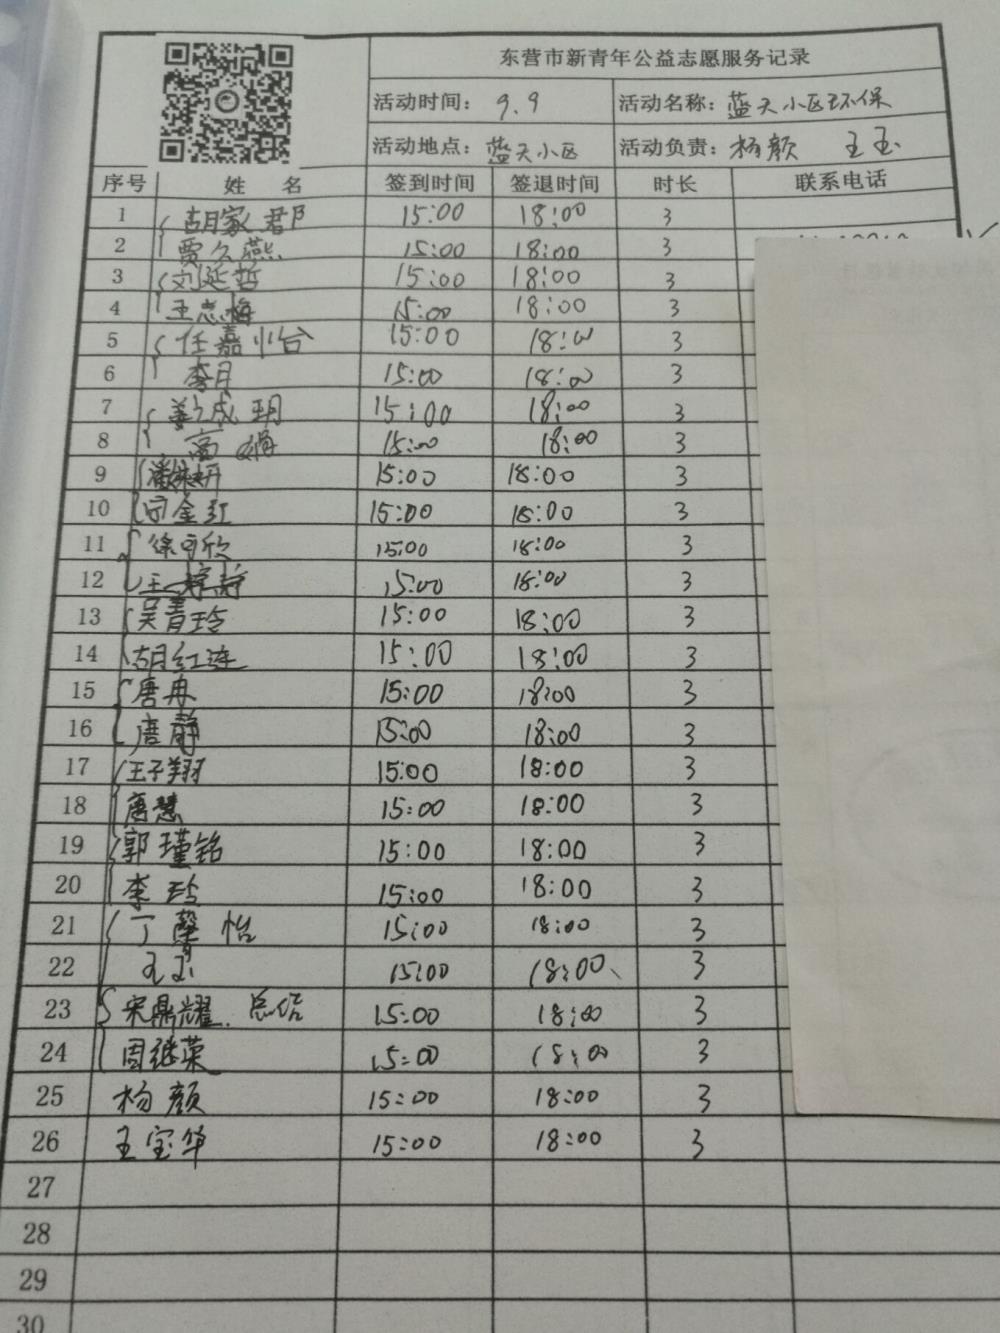 东营市新青年公益志愿服务记录
活动时间: 9.9 活动名称: 蓝天小区环保
活动地点: 蓝天小区 活动负责: 杨颜 王玉
序号 姓 名 签到时间 签退时间 时长 联系电话
1 胡家郡 15:00 18:00 3
2 贾久燕 15:00 18:00 3
3 刘延哲 15:00 18:00 3
4 王志梅 15:00 18:00 3
5 任嘉怡 15:00 18:00 3
6 李月 15:00 18:00 3
7 姜成玥 15:00 18:00 3
8 高娟 15:00 18:00 3
9 15:00 18:00 3
10 金红 15:00 18:00 3
11 徐可欣 15:00 18:00 3
12 王婷婷 15:00 18:00 3
13 吴青玲 15:00 18:00 3
14 胡红连 15:00 18:00 3
15 唐冉 15:00 18:00 3
16 唐静 15:00 18:00 3
17 王子翔 15:00 18:00 3
18 唐慧 15:00 18:00 3
19 郭瑾铭 15:00 18:00 3
20 李玲 15:00 18:00 3
21 丁馨怡 15:00 18:00 3
22 王玉 15:00 18:00 3
23 宋鼎耀. 总结 15:00 18:00 3
24 周继荣 15:00 18:00 3
25 杨颜 15:00 18:00 3
26 王宝华 15:00 18:00 3
27
28
29
30